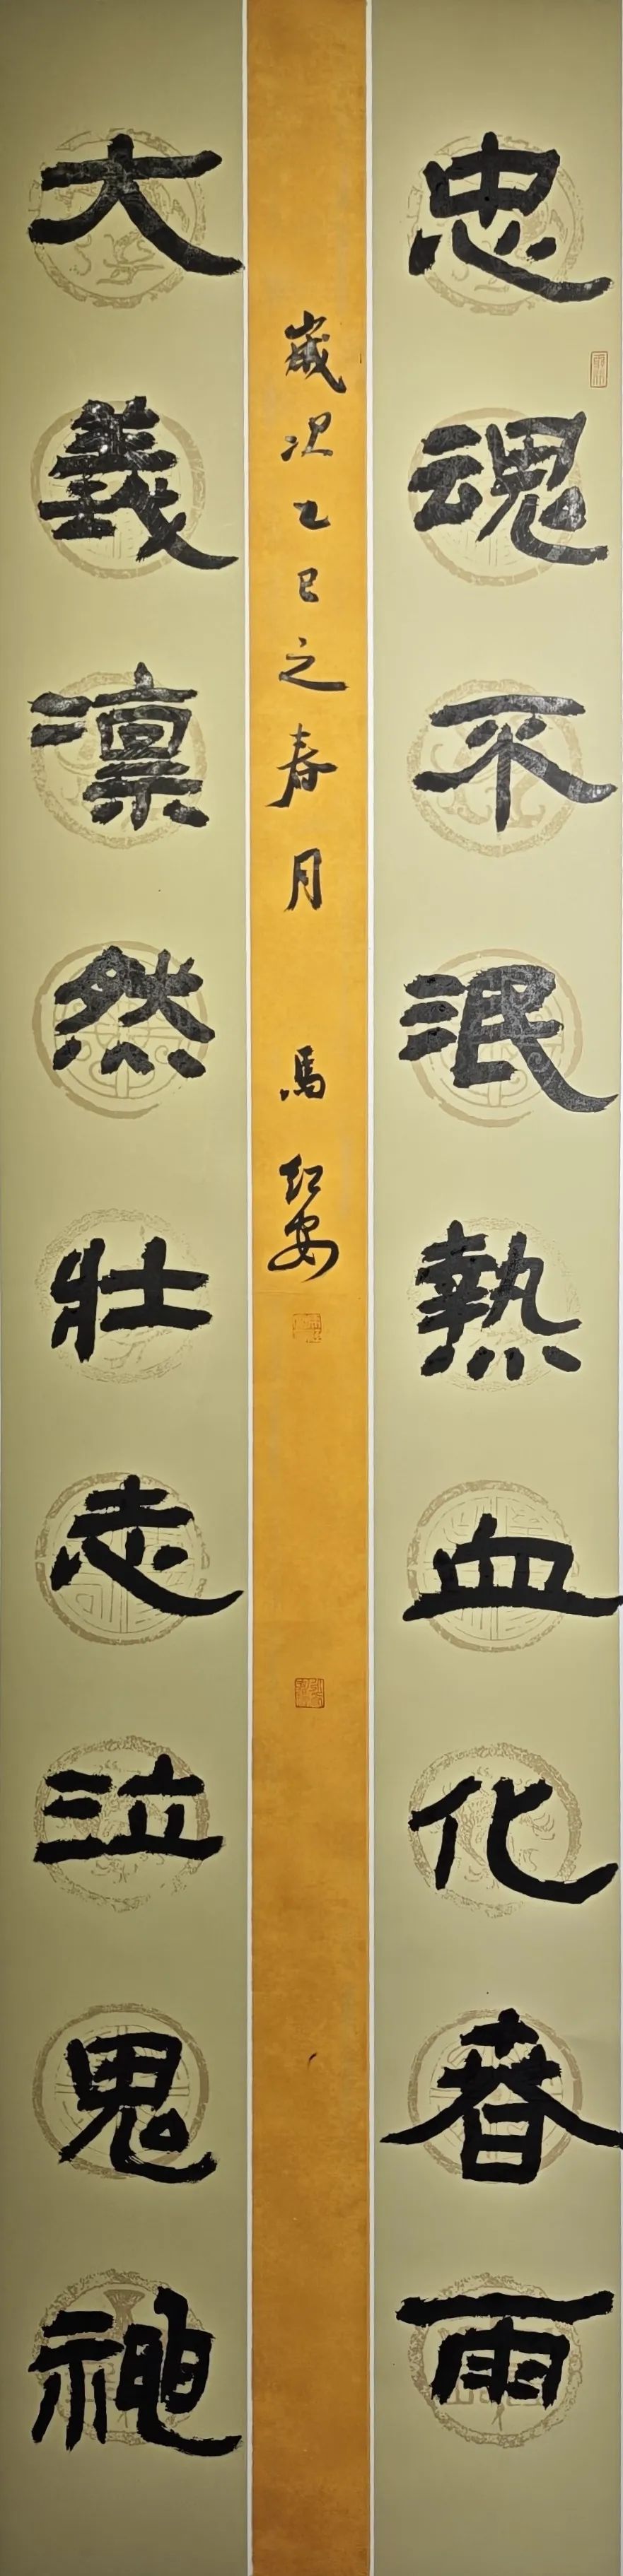 忠魂不泯熱血化春雨
大義凜然壯志泣鬼神
歲次乙巳之春月 馬紅安